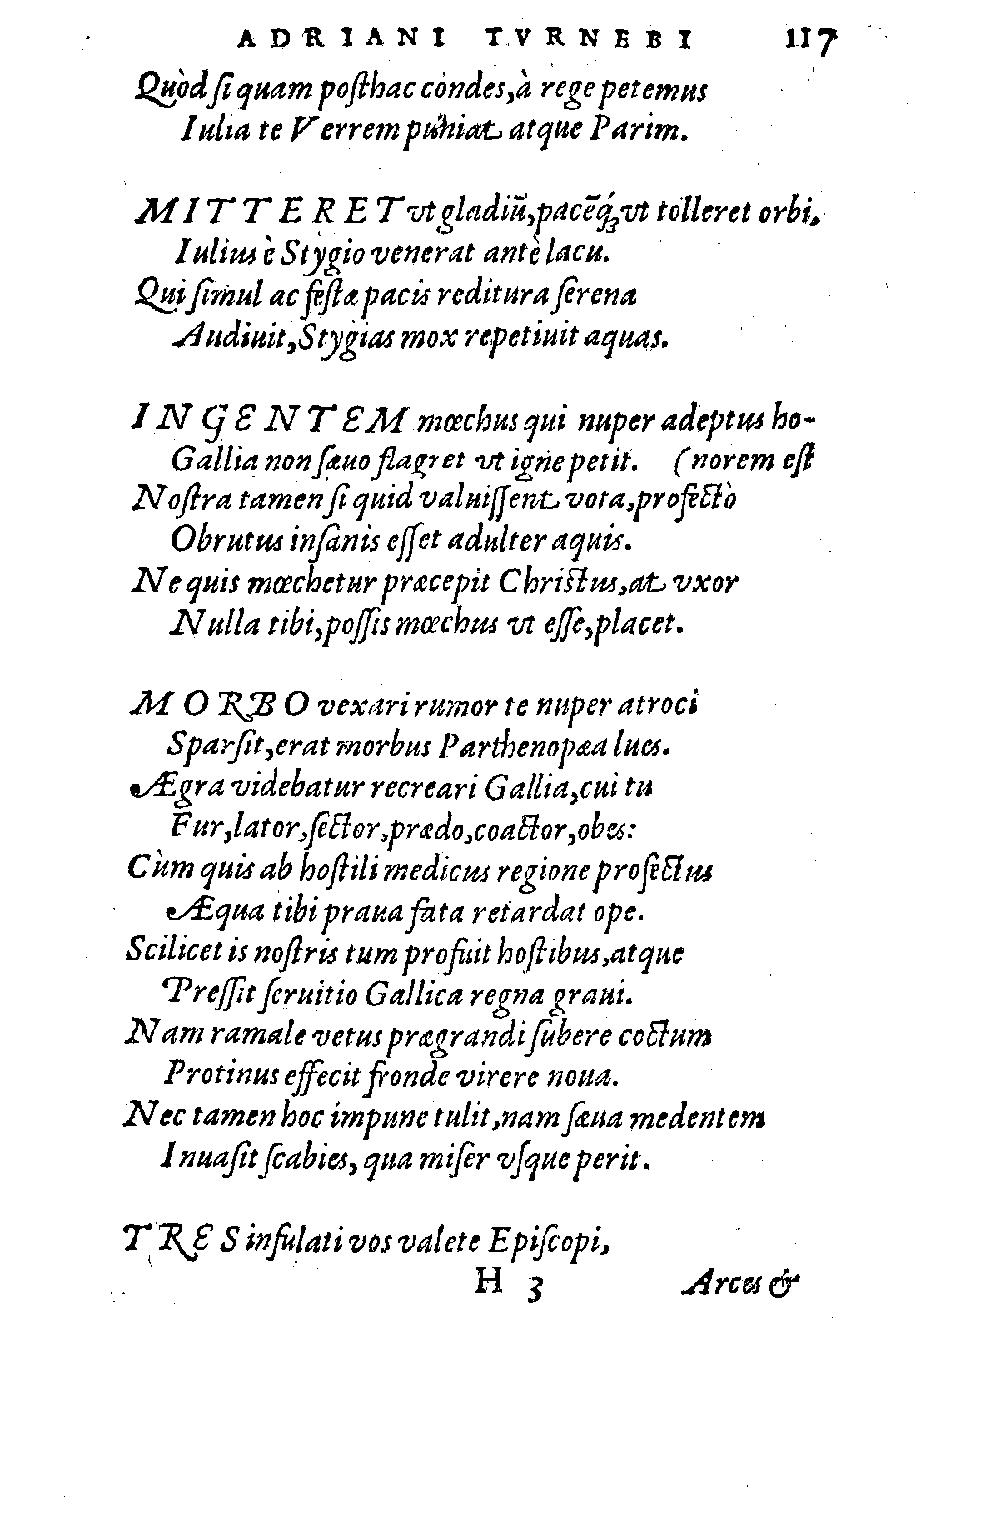 ADRIANI TVRNEBI 117
Quòd ſi quam poſthac condes, à rege petemus
Iulia te Verrem puniat atque Parim.
MITTERET vt gladiũ, pacẽq́ꝫ vt tolleret orbi,
Iulius è Stygio venerat antè lacu.
Qui ſimul ac feſtæ pacis reditura ſerena
Audiuit, Stygias mox repetiuit aquas.
INGENTEM mœchus qui nuper adeptus ho-
Gallia non ſæuo flagret vt igne petit. (norem eſt
Noſtra tamen ſi quid valuiſſent vota, profectò
Obrutus inſanis eſſet adulter aquis.
Ne quis mœchetur præcepit Chriſtus, at vxor
Nulla tibi, poſſis mœchus vt eſſe, placet.
MORBO vexari rumor te nuper atroci
Sparſit, erat morbus Parthenopæa lues.
Ægra videbatur recreari Gallia, cui tu
Fur, lator, ſector, prædo, coactor, obes:
Cùm quis ab hoſtili medicus regione profectus
Æqua tibi praua fata retardat ope.
Scilicet is noſtris tum profuit hoſtibus, atque
Preſſit ſeruitio Gallica regna graui.
Nam ramale vetus prægrandi ſubere coctum
Protinus effecit fronde virere noua.
Nec tamen hoc impune tulit, nam ſæua medentem
Inuaſit ſcabies, qua miſer vſque perit.
TRES infulati vos valete Epiſcopi,
H 3 Arces &